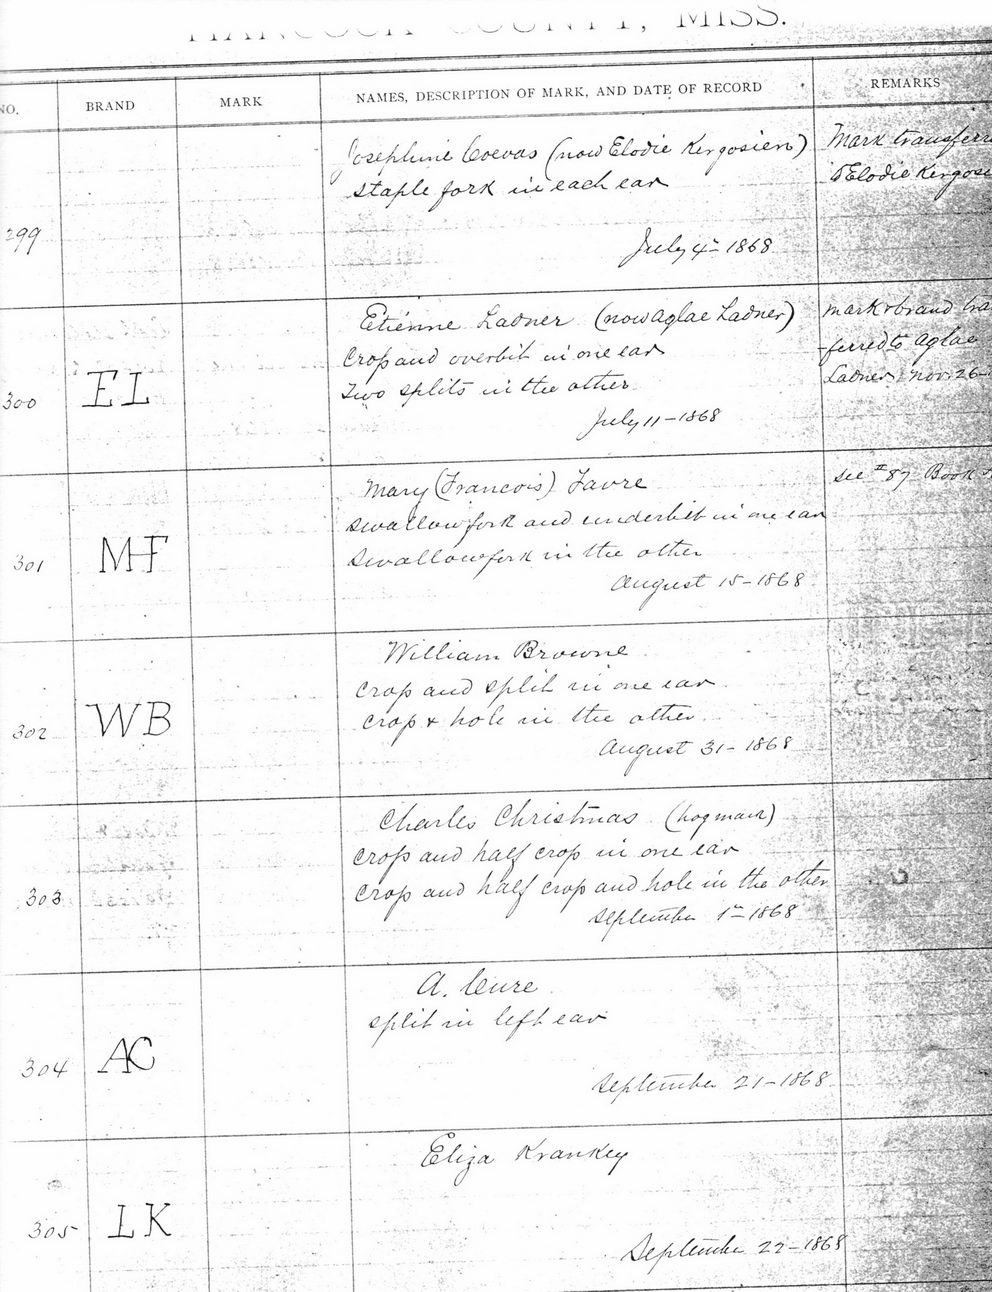 HANCOCK COUNTY, MISS.
NO. BRAND MARK NAMES, DESCRIPTION OF MARK, AND DATE OF RECORD REMARKS
299
Josephine Coevas (now Elodie Kergosien)
staple fork in each ear
July 4th 1868
Mark transferre
to Elodie Kergosi
300
EL
Etiénne Ladner (now Aglae Ladner)
Crop and overbit in one ear
Two splits in the other
July 11-1868
mark & brand tra
-ferred to Aglae
Ladner, Nov. 26-
301
MF
Mary (Francois) Favre
swallow fork and underbit in one ear
swallowfork in the other
August 15-1868
see #87 Book
302
WB
William Browne
crop and split in one ear
crop & hole in the other
August 31-1868
303
Charles Christmas (hogmark)
crop and half crop in one ear
crop and half crop and hole in the other
September 1st 1868
304
AC
A. Cure
split in left ear
September 21-1868
305
LK
Eliza Krankey
September 22-1868